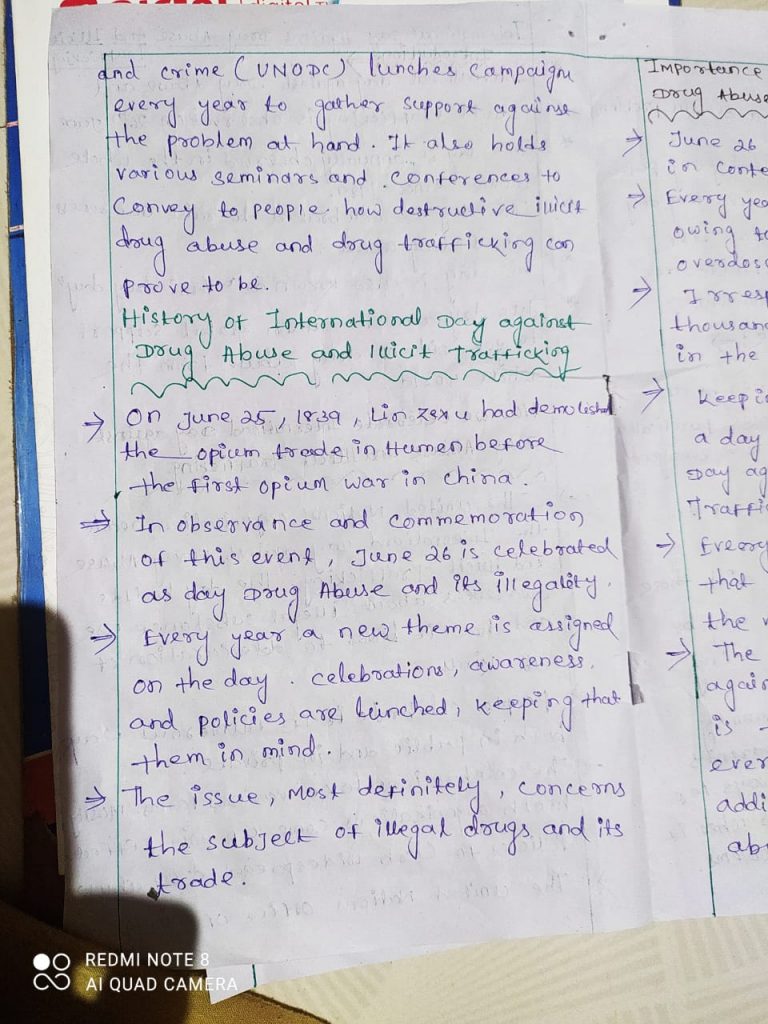 and crime (UNODC) lunches campaign
every year to gather support against
the problem at hand. It also holds
various seminars and conferences to
Convey to people how destructive illicit
drug abuse and drug trafficking can
prove to be.
History of International Day against
Drug Abuse and Illicit Trafficking
→ On June 25, 1839, Lin Zexu had demolished
the opium trade in Humen before
the first opium war in china.
⇒ In observance and commemoration
of this event, June 26 is celebrated
as day Drug Abuse and its illegality.
⇒ Every year a new theme is assigned
on the day. celebrations, awareness,
and policies are lunched, keeping that
them in mind.
⇒ The issue, most definitely, concerns
the subject of illegal drugs and its
trade.
Importance
Drug Abuse
→ June 26
in conte
→ Every yea
owing to
overdos
→ Irresp
thousan
in the
→ keepin
a day
Day ag
Traffic
→ Every
that
the
→ The
again
is
ever
addi
ab
REDMI NOTE 8
AI QUAD CAMERA